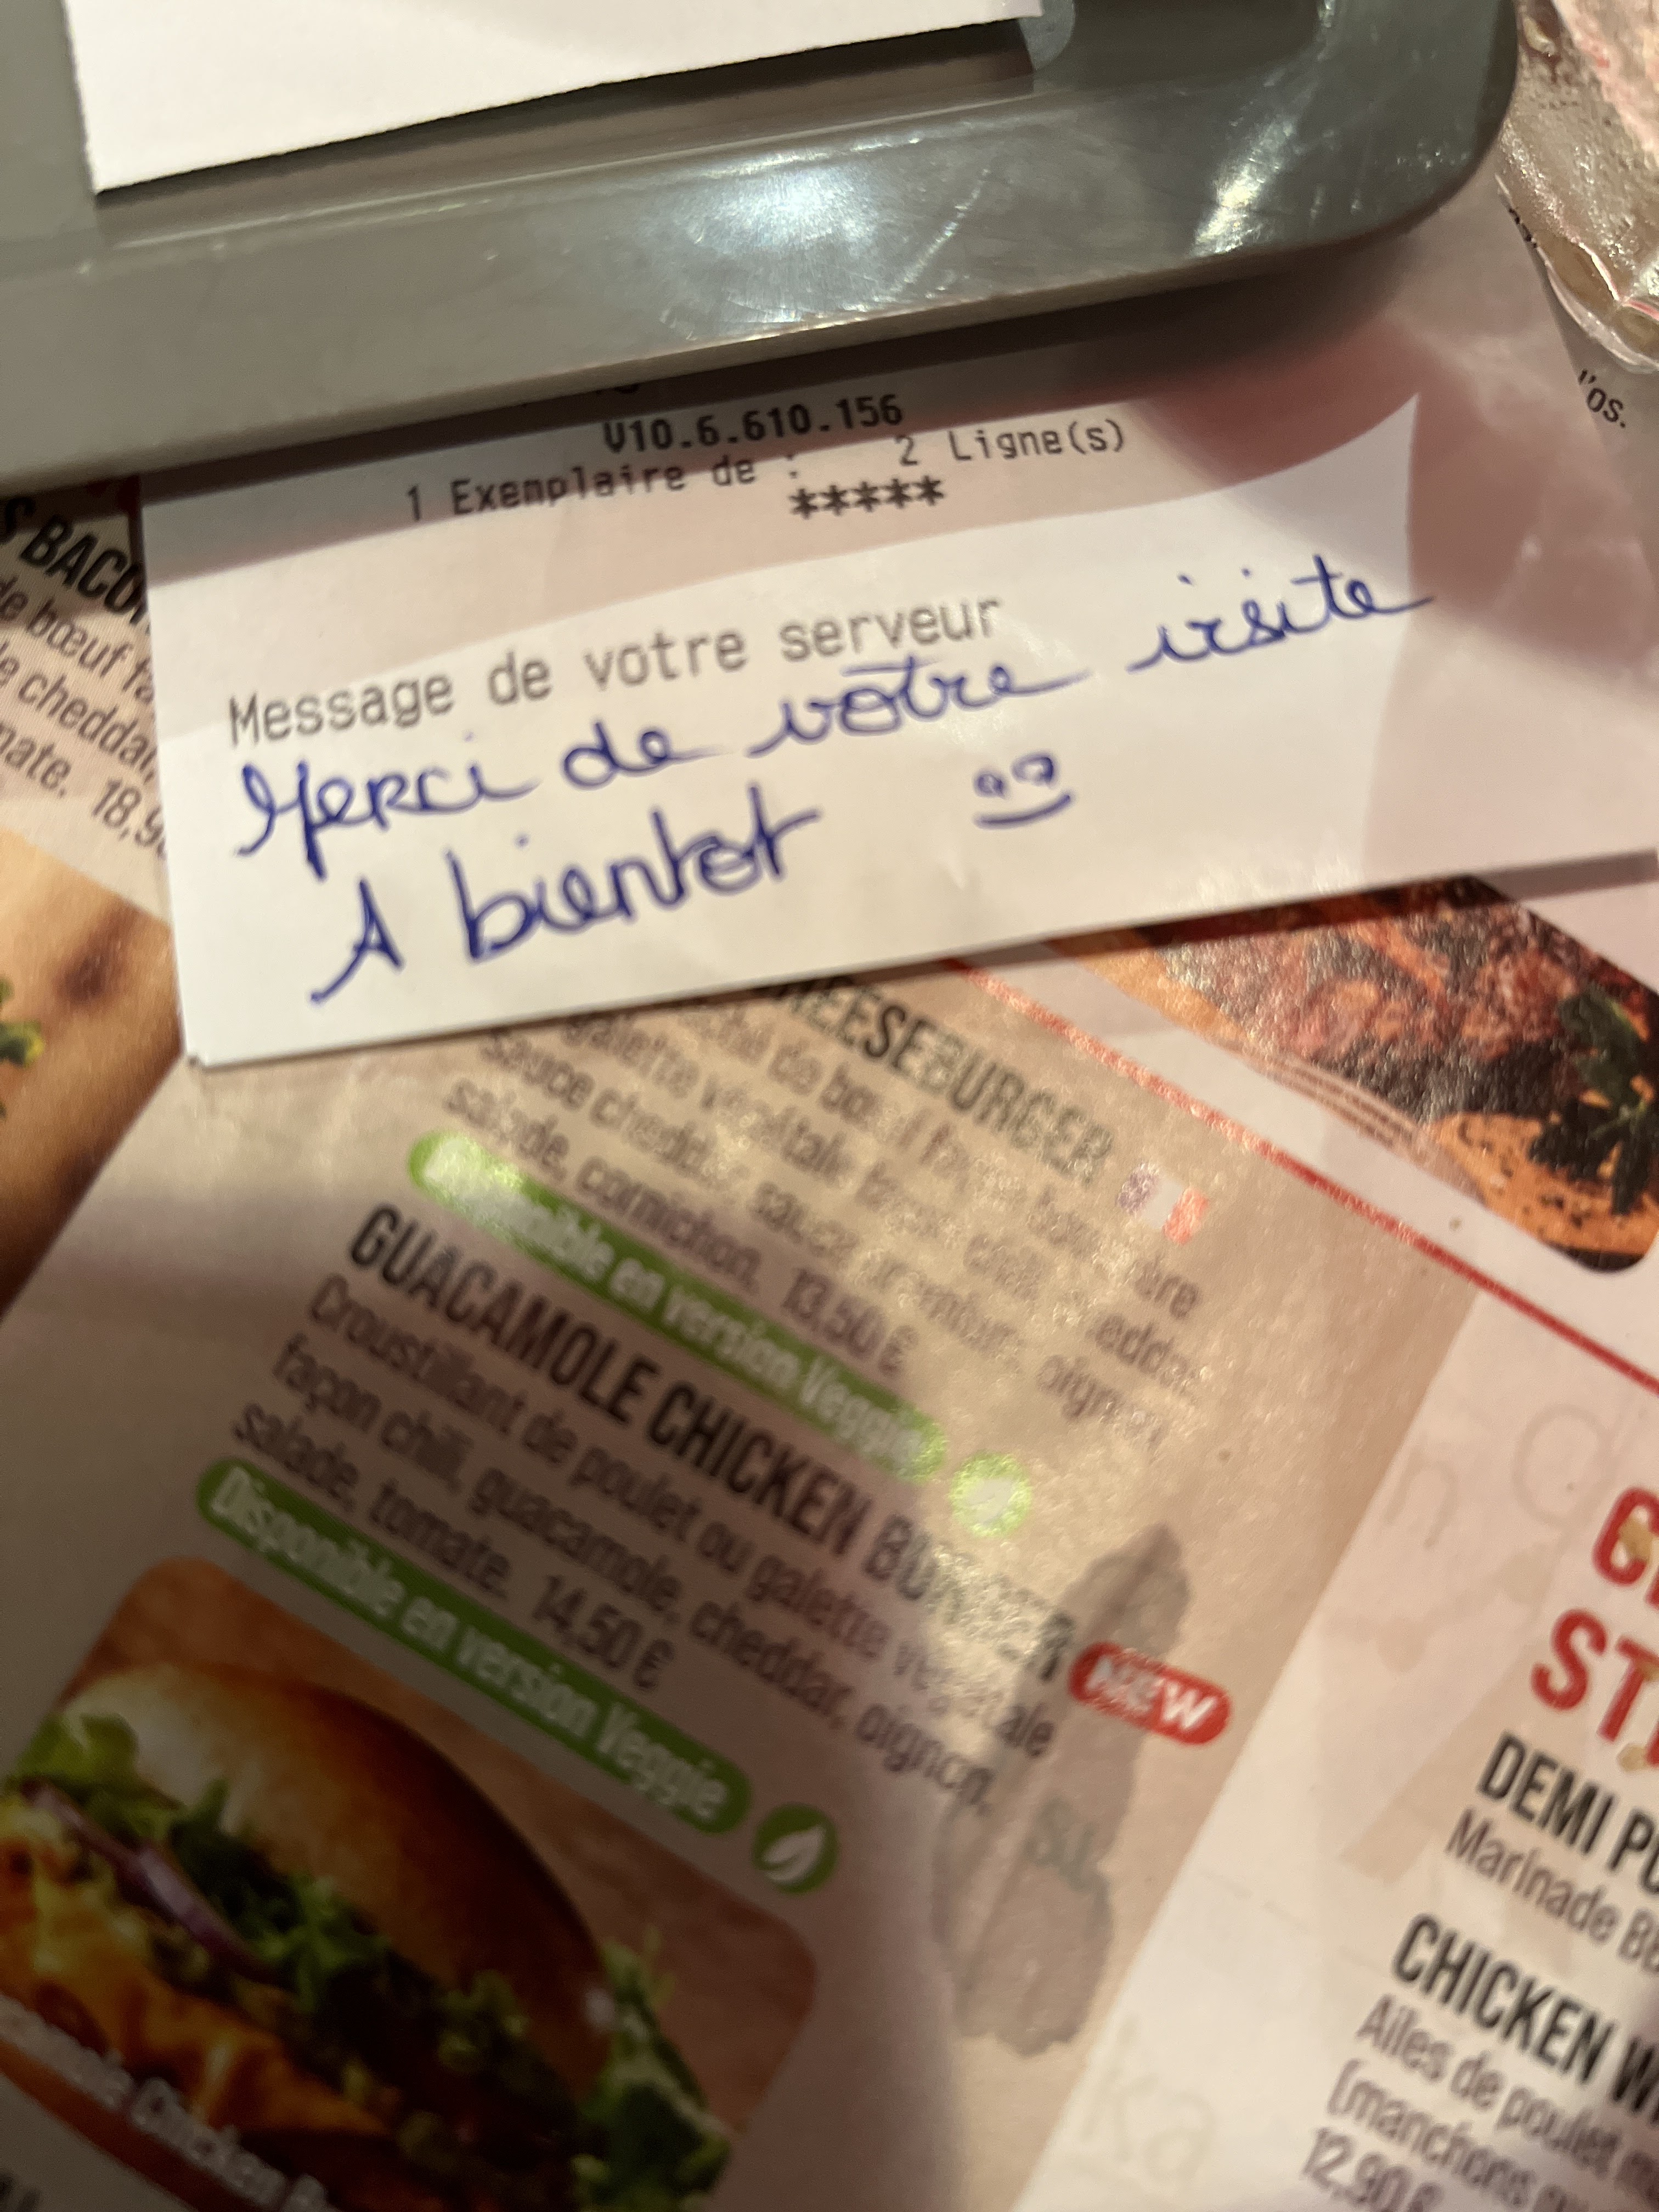 V10.6.610.156
1 Exemplaire de : 2 Ligne(s)
*****
Message de votre serveur
Merci de votre visite
A bientot
BACO
de bœuf fa
cheddar,
mate. 18,9
l'os.
HEESEBURGER
galette végétale
sauce cheddar, sauce oignon,
salade, cornichon. 13,50 €
Disponible en version Veggie
GUACAMOLE CHICKEN BURGER NEW
Croustillant de poulet ou galette végétale
façon chili, guacamole, cheddar, oignon,
salade, tomate. 14,50 €
Disponible en version Veggie
ST
DEMI PO
Marinade BB
CHICKEN W
Ailes de poulet
(manchons
12,90 €
Chicken B